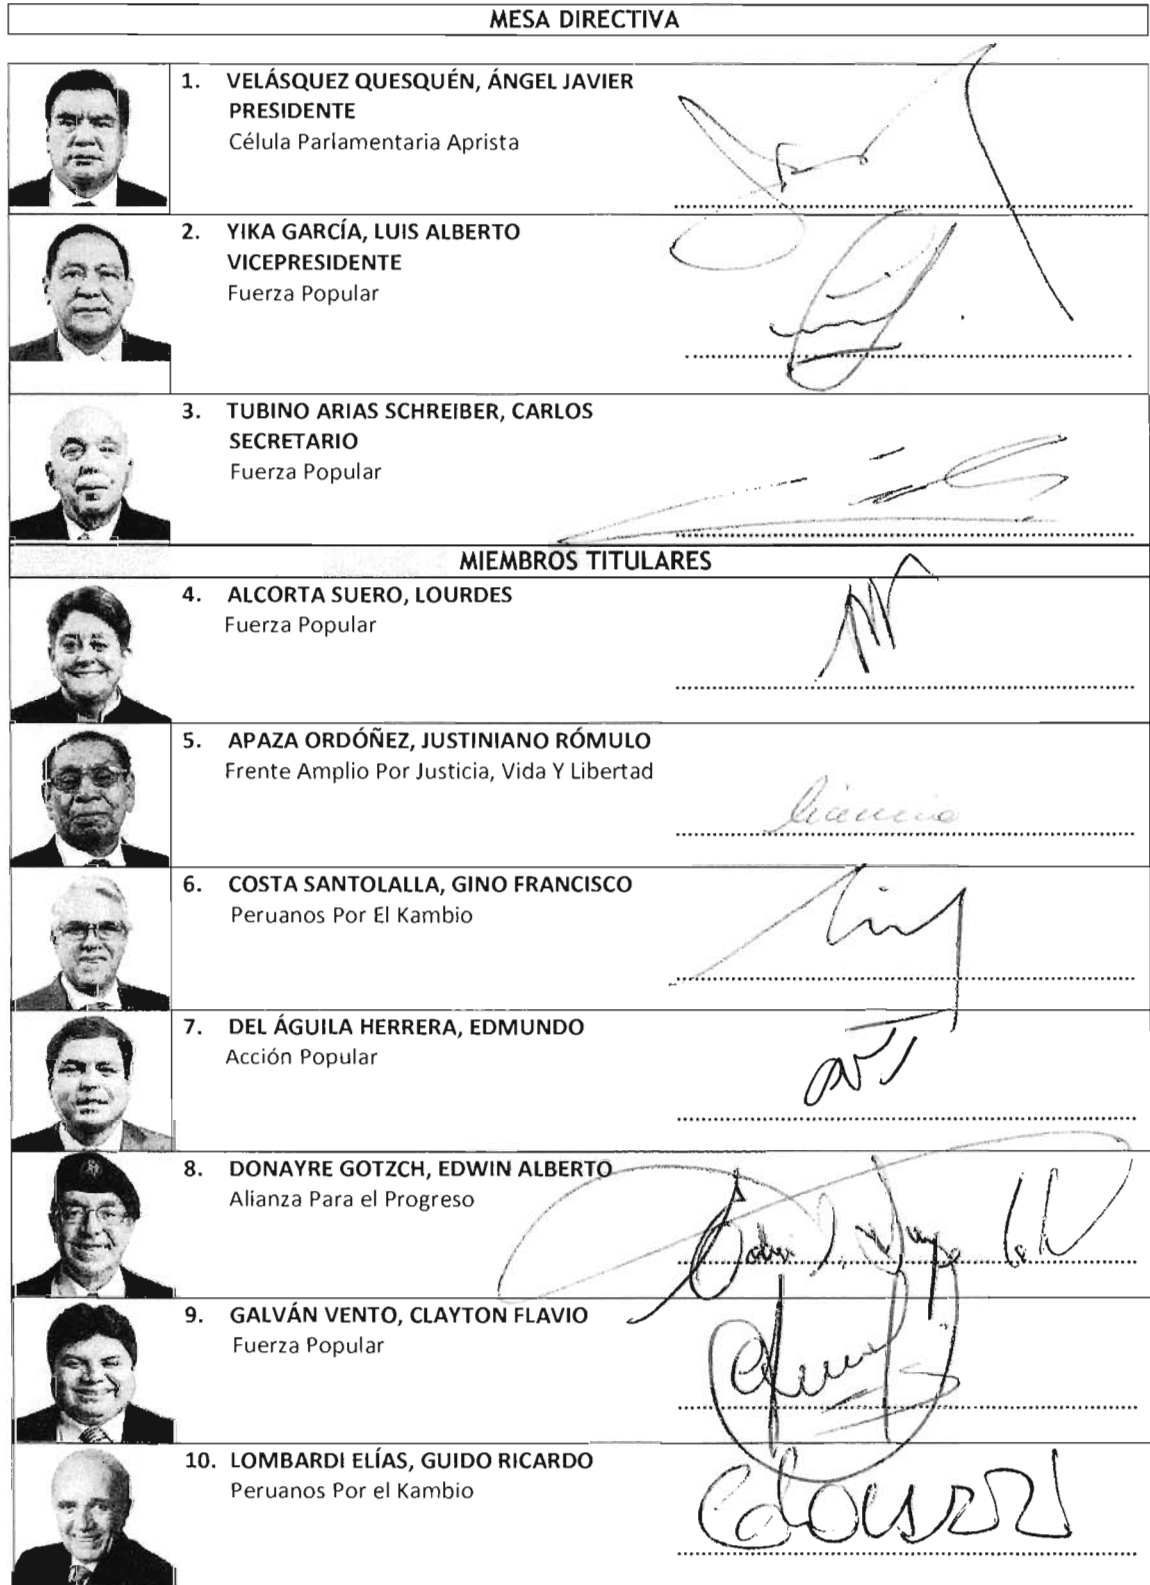 MESA DIRECTIVA
1. VELÁSQUEZ QUESQUÉN, ÁNGEL JAVIER
PRESIDENTE
Célula Parlamentaria Aprista
2. YIKA GARCÍA, LUIS ALBERTO
VICEPRESIDENTE
Fuerza Popular
3. TUBINO ARIAS SCHREIBER, CARLOS
SECRETARIO
Fuerza Popular
MIEMBROS TITULARES
4. ALCORTA SUERO, LOURDES
Fuerza Popular
5. APAZA ORDÓÑEZ, JUSTINIANO RÓMULO
Frente Amplio Por Justicia, Vida Y Libertad
licencia
6. COSTA SANTOLALLA, GINO FRANCISCO
Peruanos Por El Kambio
7. DEL ÁGUILA HERRERA, EDMUNDO
Acción Popular
8. DONAYRE GOTZCH, EDWIN ALBERTO
Alianza Para el Progreso
9. GALVÁN VENTO, CLAYTON FLAVIO
Fuerza Popular
10. LOMBARDI ELÍAS, GUIDO RICARDO
Peruanos Por el Kambio